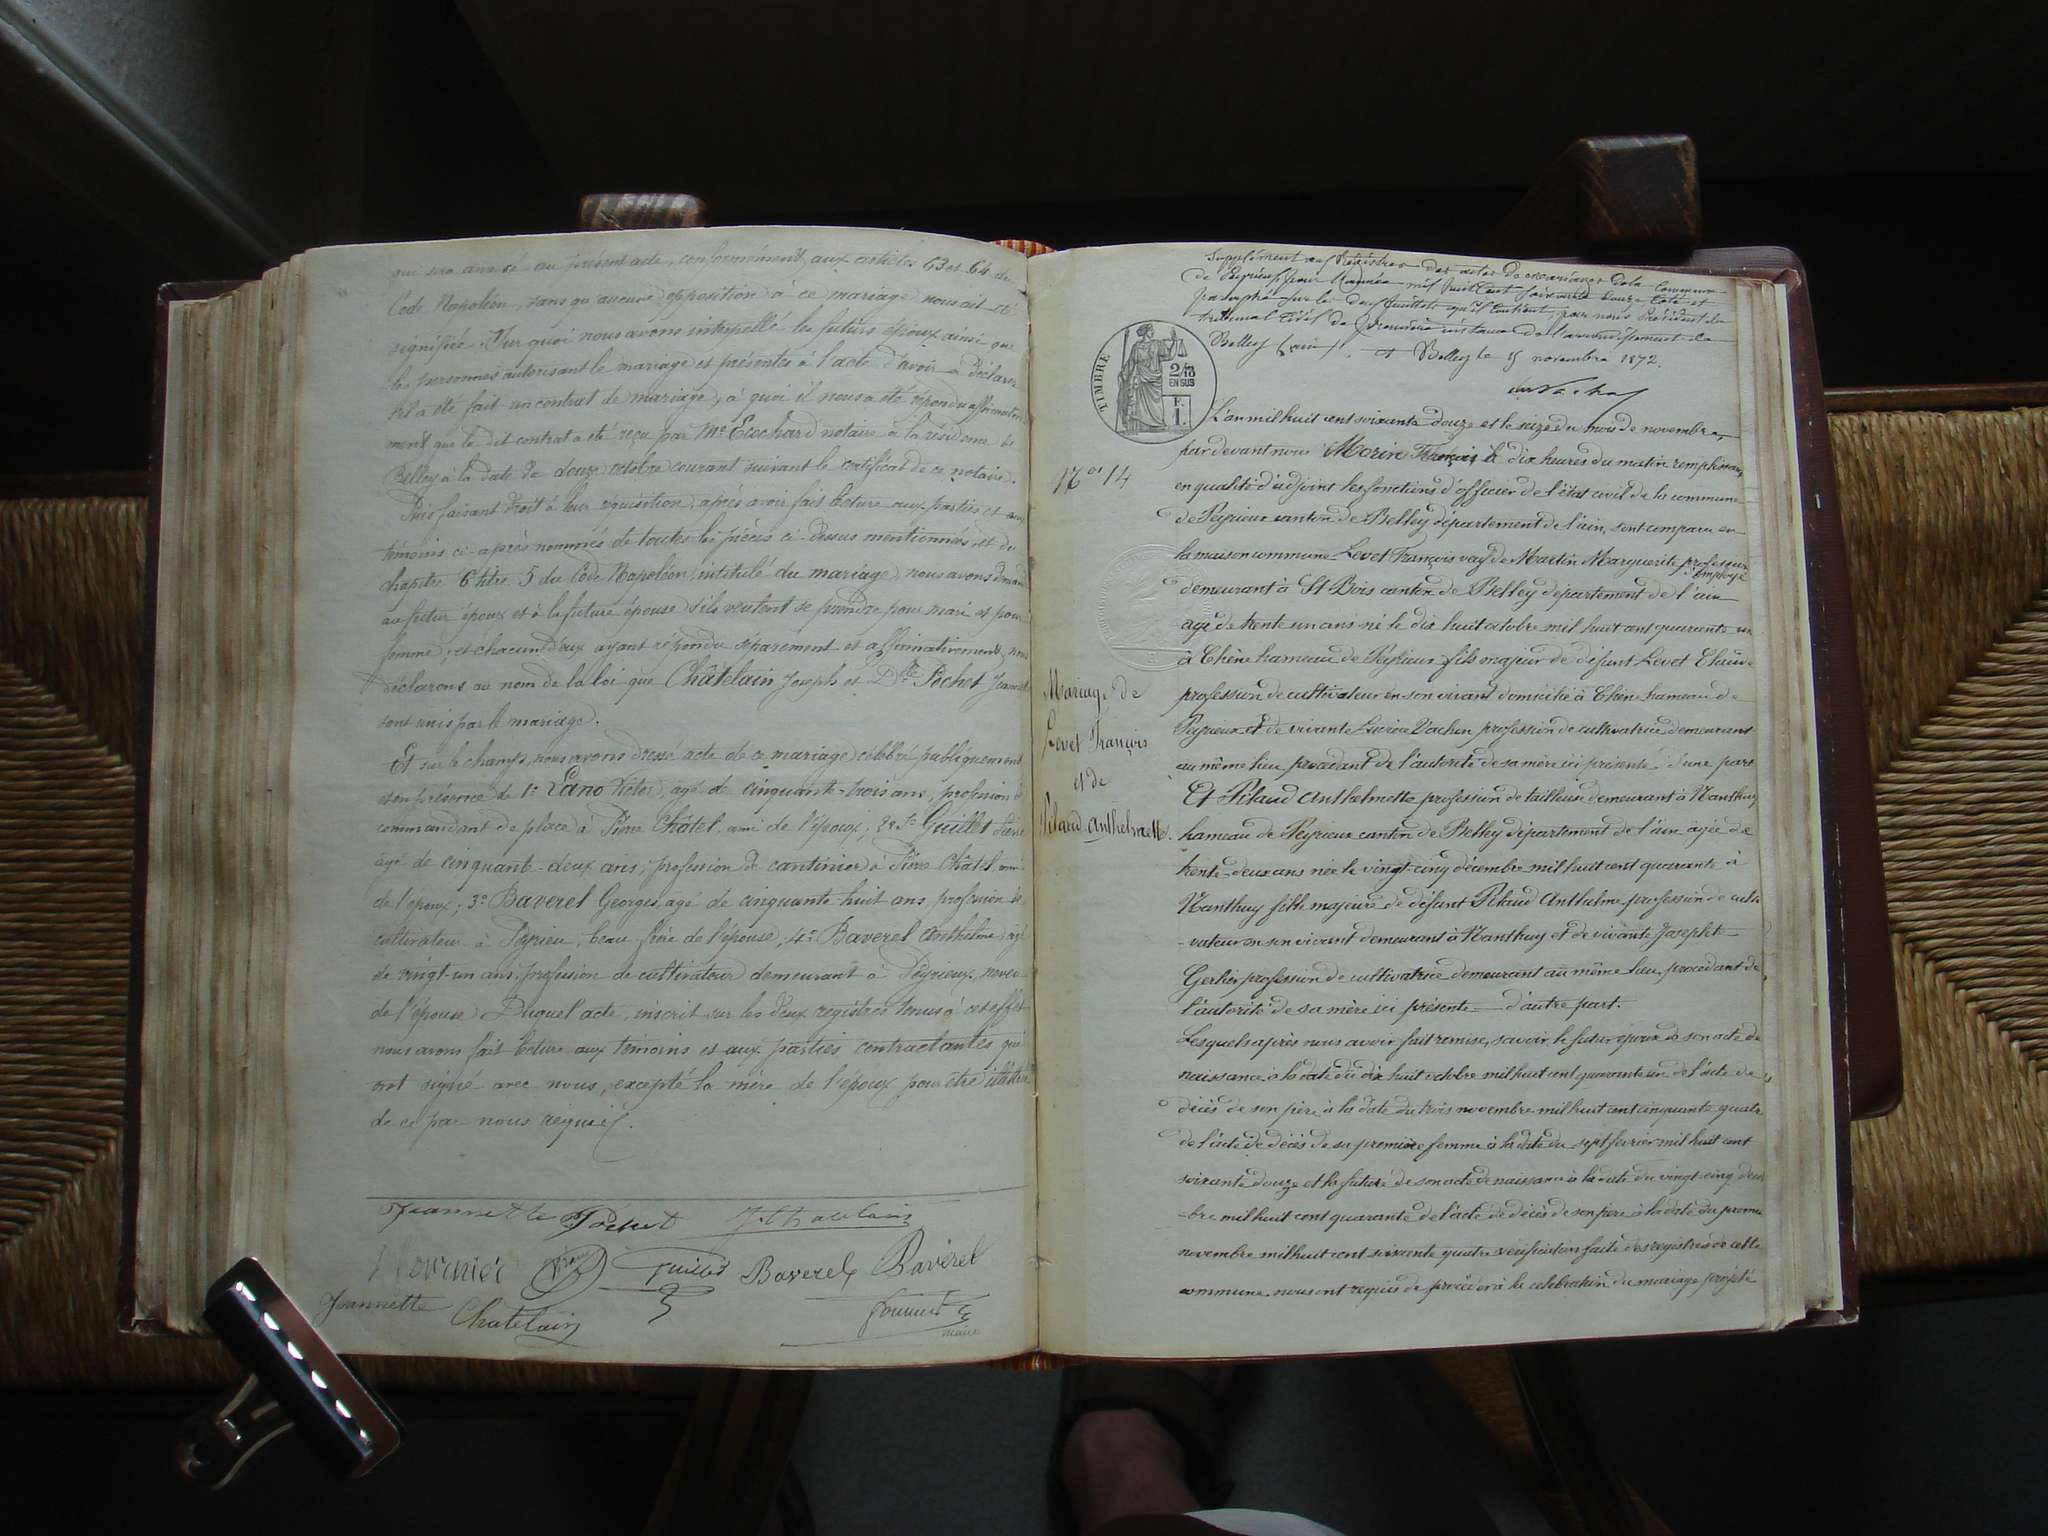 qui sera annexé au présent acte, conformément aux articles 63 et 64 du
Code Napoléon, sans qu'aucune opposition à ce mariage nous ait été
signifiée. Sur quoi nous avons interpellé les futurs époux ainsi que
les personnes autorisant le mariage et présentes à l'acte d'avoir à déclarer
s'il a été fait un contrat de mariage, à quoi il nous a été répondu affirmative
ment que le dit contrat a été reçu par Me Ecochard notaire à la résidence de
Belley à la date de douze octobre courant suivant le certificat de ce notaire.
Puis faisant droit à leur réquisition, après avoir fait lecture aux parties et aux
témoins ci-après nommés de toutes les pièces ci-dessus mentionnées et du
chapitre 6 titre 5 du Code Napoléon, intitulé du mariage, nous avons demandé
au futur époux et à la future épouse s'ils veulent se prendre pour mari et pour
femme; et chacun d'eux ayant répondu séparément et affirmativement, nous
déclarons au nom de la loi que Châtelain Joseph et Dlle Pochet Jeannette
sont unis par le mariage.
Et sur le champ, nous avons dressé acte de ce mariage célébré publiquement
et en présence de 1° Victor, âgé de cinquante-trois ans, profession de
commandant de place à Pierre Châtel, ami de l'époux; 2° Guillet
âgé de cinquante-deux ans, profession de cantinier à Pierre Châtel, ami
de l'époux; 3° Baverel Georges, âgé de cinquante-huit ans profession de
cultivateur à Peyrieu, beau frère de l'épouse, 4° Baverel Anthelme, âgé
de vingt-un ans, profession de cultivateur demeurant à Peyrieux, neveu
de l'épouse Duquel acte, inscrit sur les deux registres tenus à cet effet
nous avons fait lecture aux témoins et aux parties contractantes qui
ont signé avec nous, excepté la mère de l'époux pour être illettrée
de ce par nous requis.
Jeannette Pochet J. Chatelain
Fournier Guillet Baverel Baverel
Jeannette Chatelain Fournier
maire
Supplément aux Registres des actes de mariages de la Commune
de Peyrieux pour l'année mil huit cent soixante douze Coté et
paraphé sur les deux feuillets qu'il contient, par nous Président du
tribunal Civil de première instance de l'arrondissement de
Belley (ain). à Belley le 15 novembre 1872.
TIMBRE
2/10
EN SUS
F.
1.
L'an mil huit cent soixante douze et le seize du mois de novembre,
par devant nous Morin François à dix heures du matin remplissant
No 14
en qualité d'adjoint les fonctions d'officier de l'état civil de la commune
de Peyrieux canton de Belley département de l'ain, sont comparu en
la maison commune Levet François veuf de Martin Marguerite profession
d'employé
demeurant à St Bois canton de Belley département de l'ain
âgé de trente un ans né le dix huit octobre mil huit cent quarante un
à Chêne hameau de Peyrieux fils majeur de défunt Levet Claude
Mariage de
Levet François
et de
Pilaud Anthelmette.
profession de cultivateur en son vivant domicilié à Chêne hameau de
Peyrieux et de vivante Vachen profession de cultivatrice demeurant
au même lieu, procédant de l'autorité de sa mère ici présente d'une part
Et Pilaud Anthelmette profession de tailleuse demeurant à Nanthuy
hameau de Peyrieux canton de Belley département de l'ain âgée de
trente-deux ans née le vingt-cinq décembre mil huit cent quarante à
Nanthuy fille majeure de défunt Pilaud Anthelme profession de culti
-vateur en son vivant demeurant à Nanthuy et de vivante Josephte
Gerlin profession de cultivatrice demeurant au même lieu, procédant de
l'autorité de sa mère ici présente d'autre part.
Lesquels après nous avoir fait remise, savoir, le futur époux de son acte de
naissance à la date du dix huit octobre mil huit cent quarante un de l'acte de
décès de son père à la date du trois novembre mil huit cent cinquante quatre
de l'acte de décès de sa première femme à la date du sept fevrier mil huit cent
soixante douze et la future de son acte de naissance à la date du vingt cinq décem
-bre mil huit cent quarante de l'acte de décès de son père à la date du premier
novembre mil huit cent soixante quatre vérification faite des registres de cette
commune, nous ont requis de procéder à la célébration du mariage projeté